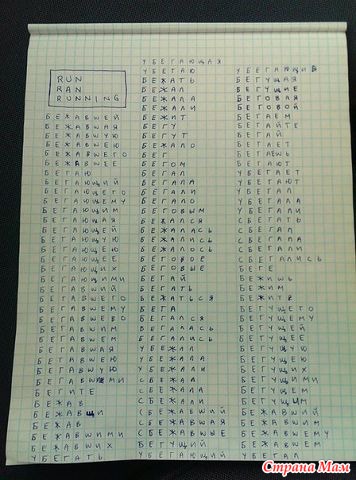 RUN
RAN
RUNNING
БЕЖАВШЕЙ
БЕЖАВШАЯ
БЕЖАВШУЮ
БЕЖАВШЕЮ
БЕЖАВШЕГО
БЕЖАВШЕЕ
БЕГАЮ
БЕГАЮЩИЙ
БЕГАЮЩЕГО
БЕГАЮЩЕМУ
БЕГАЮЩИМ
БЕГАЮЩАЯ
БЕГАЮЩЕЙ
БЕГАЮЩУЮ
БЕГАЮЩЕЮ
БЕГАЮЩЕЕ
БЕГАЮЩИХ
БЕГАЮЩИМИ
БЕГАВШИЙ
БЕГАВШЕГО
БЕГАВШЕМУ
БЕГАВШЕЕ
БЕГАВШИМ
БЕГАВШЕМ
БЕГАВШАЯ
БЕГАВШЕЮ
БЕГАВШУЮ
БЕГАВШИМИ
БЕГИТЕ
БЕЖАВ
БЕЖАВШИ
БЕЖАВ
БЕЖАВШИМИ
БЕЖАВШИХ
УБЕГАТЬ
УБЕГАЮЩАЯ
УБЕГАЮ
БЕЖАТЬ
БЕЖАЛ
БЕЖАЛА
БЕЖАЛИ
БЕЖИТ
БЕГУ
БЕГУТ
БЕЖАЛО
БЕГ
БЕГОМ
БЕГАЛ
БЕГАЛА
БЕГАЛИ
БЕГАЛО
БЕГОВЫМ
БЕЖАЛСЯ
БЕЖАЛАСЬ
БЕЖАЛИСЬ
БЕЖАЛОСЬ
БЕГОВОЕ
БЕГОВЫЕ
БЕГАЙ
БЕГАТЬ
БЕЖАТЬСЯ
БЕГА
БЕГАЛСЯ
БЕГАЛАСЬ
БЕГАЛИСЬ
УБЕЖАЛ
УБЕЖАЛА
УБЕЖАЛИ
СБЕЖАЛ
СБЕЖАЛА
СБЕЖАЛИ
СБЕЖАВШИЙ
СБЕЖАВШАЯ
СБЕЖАВШЫЕ
БЕГУЩИЙ
УБЕГАЮЩИЙ
УБЕГАЮЩИЕ
БЕГУЩАЯ
БЕГУЩИЕ
БЕГОВАЯ
БЕГОВОЙ
БЕГАЕМ
БЕГАЙТЕ
БЕГАЙ
БЕГАЕТ
БЕГАЕШЬ
БЕГАЮТ
УБЕГАЕТ
УБЕГАЮТ
УБЕГАЛ
УБЕГАЛА
УБЕГАЛИ
СБЕГАТЬ
СБЕГАЛ
СБЕГАЛА
СБЕГАЛИ
СБЕГАЛИСЬ
БЕГЕ
БЕЖИШЬ
БЕЖИМ
БЕЖИТЕ
БЕГУЩЕГО
БЕГУЩЕМУ
БЕГУЩЕЙ
БЕГУЩЕЕ
БЕГУЩУЮ
БЕГУЩЕЮ
БЕГУЩИХ
БЕГУЩИМИ
БЕГУЩЕМ
БЕГУЩИМ
БЕЖАВШИЙ
БЕЖАВШИМ
БЕЖАВШЕМУ
БЕЖАВШЕМ
УБЕГАЛ
Страна Мам